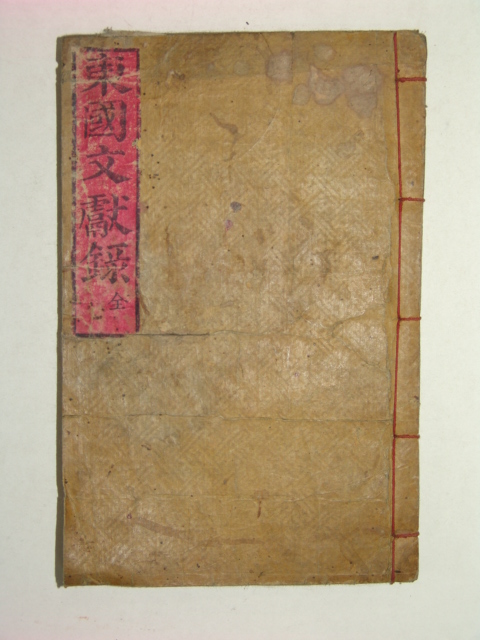 東國文獻錄 全